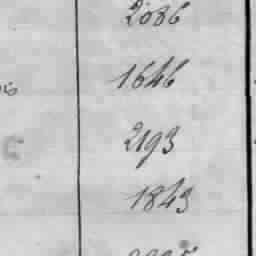 2086
1646
2193
1843